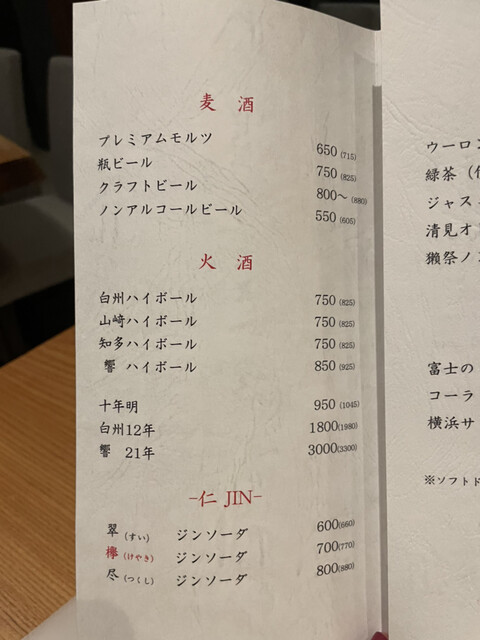 麦 酒
プレミアムモルツ 650 (715)
瓶ビール 750 (825)
クラフトビール 800〜 (880)
ノンアルコールビール 550 (605)
火 酒
白州ハイボール 750 (825)
山崎ハイボール 750 (825)
知多ハイボール 750 (825)
響 ハイボール 850 (925)
十年明 950 (1045)
白州12年 1800(1980)
響 21年 3000(3300)
-仁 JIN-
翠 (すい) ジンソーダ 600(660)
欅 (けやき) ジンソーダ 700(770)
尽 (つくし) ジンソーダ 800(880)
ウーロン
緑茶
ジャス
清見オ
獺祭ノン
富士の
コーラ
横浜サ
※ソフトド